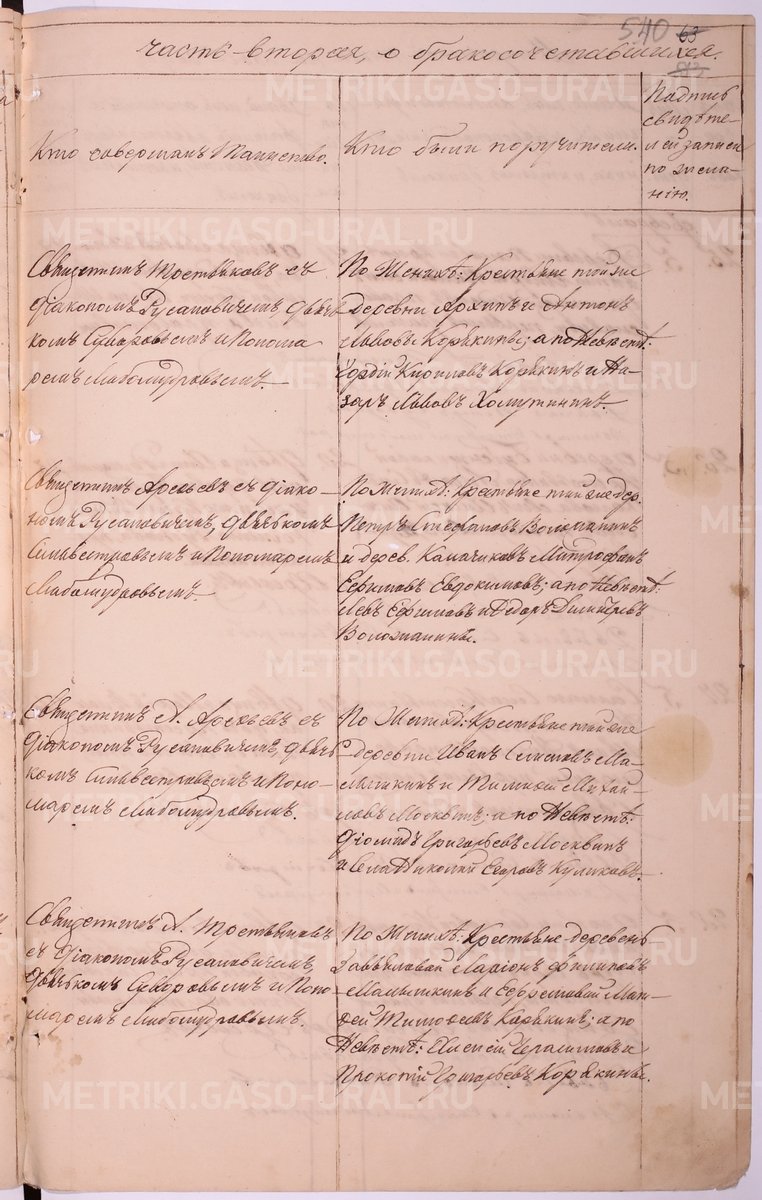 540 63
часть вторая, о бракосочетавшихся.
Кто совершалъ Таинство.
Кто были поручители.
Подпись
свидѣте-
лей записи
по жела-
нію.
Священникъ Тостяковъ съ
Діакономъ Русановичемъ, Дьяч-
комъ Суворовымъ и Понома
ремъ Любомудровымъ.
По Женихѣ: Крестьяне той же
деревни Архипъ и Антонъ
Львовы Корякины; а по Невѣстѣ:
Гордій Кириловъ Корякинъ и На-
заръ Львовъ Холмутининъ.
Священникъ Арсеньевъ съ Діако-
номъ Русановичемъ, Дьячкомъ
Сильвестровымъ и Пономаремъ
Любомудровымъ.
По Женихѣ: Крестьяне той же дер.
Петръ Стефановъ Воложанинъ
и дерев. Калачиковъ Митрофанъ
Ефимовъ Евдокимовъ; а по Невѣстѣ:
Левъ Ефимовъ и Федоръ Димитріевъ
Воложанины.
Священникъ А. Арсеньевъ съ
Діакономъ Русановичемъ, Дьяч-
комъ Сильвестровымъ и Поно-
маремъ Любомудровымъ.
По Женихѣ: Крестьяне той же
деревни Иванъ Семеновъ Ма-
мышкинъ и Тимофей Михай-
ловъ Москвинъ; а по Невѣстѣ:
Діомидъ Григорьевъ Москвинъ
и Села Николай Егоровъ Куликовъ.
Священникъ А. Тостяковъ
съ Діакономъ Русановичемъ,
Дьячкомъ Суворовымъ и Поно
маремъ Любомудровымъ.
По Женихѣ: Крестьяне деревень
Завьяловой Ларіонъ Филиповъ
Мамышкинъ и Ефремовой Мат-
фей Тимофеевъ Корякинъ; а по
Невѣстѣ: Елисей Герасимовъ и
Прокопій Григорьевъ Корякины.
METRIKI.GASO-URAL.RU